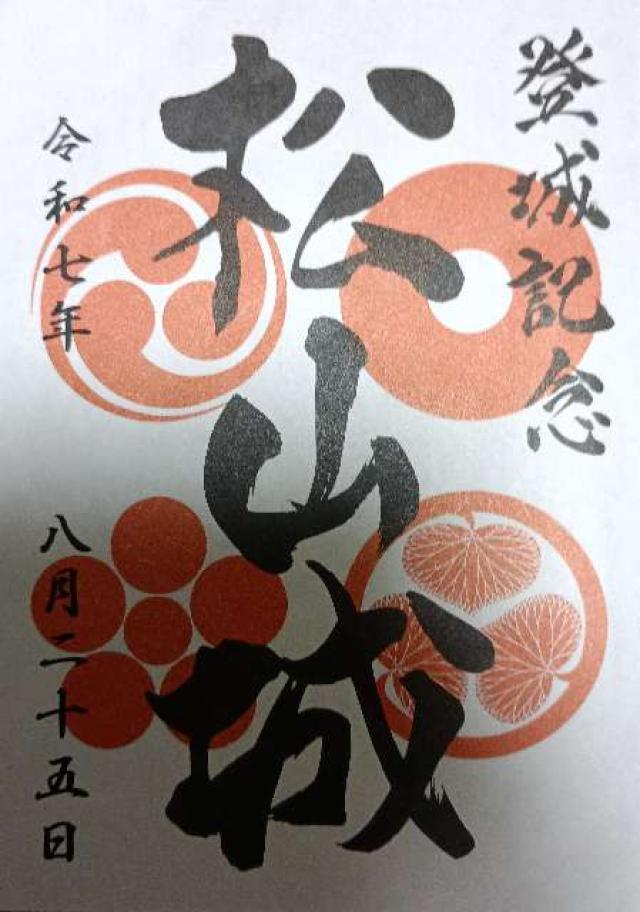 登城記念
松山城
令和七年
八月二十五日